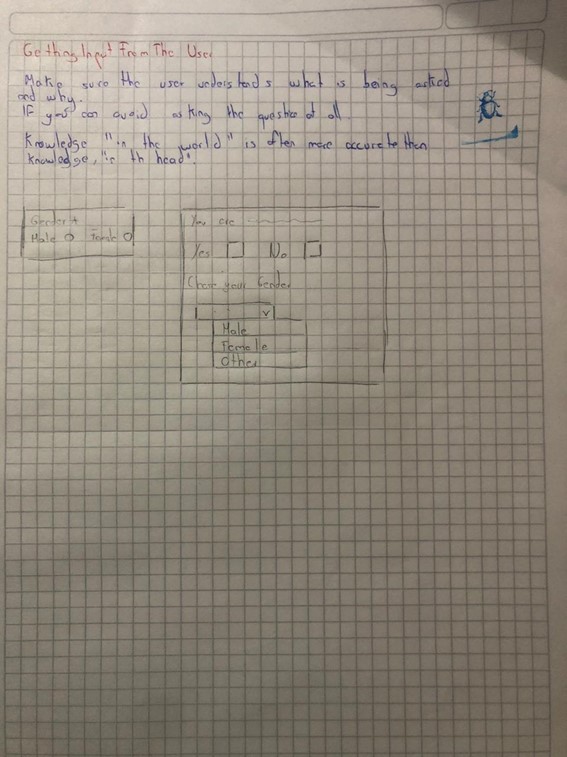 Getting Input From The User
Make sure the user understands what is being asked
and why.
IF you can avoid asking the question at all.
Knowledge "in the world" is often more accurate then
knowledge, "in th head".
Gender *
Male Female
You are
Yes No
Chose your Gender
Male
Female
Other